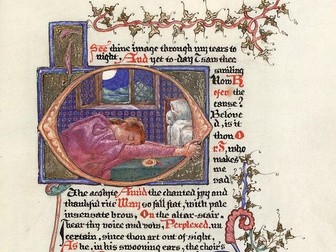 I See thine image through my tears to
night, And yet to-day I saw thee
smiling
How R
efer the
cause?
Belove
d, is it
thou O
r I, who
makes
me
sad?
The acolyte Amid the chanted joy and
thankful rite May so fall flat, with pale
insensate brow, On the altar-stair. I
hear thy voice and vow, Perplexed, un
certain, since thou art out of sight,
As he, in his swooning ears, the choir's